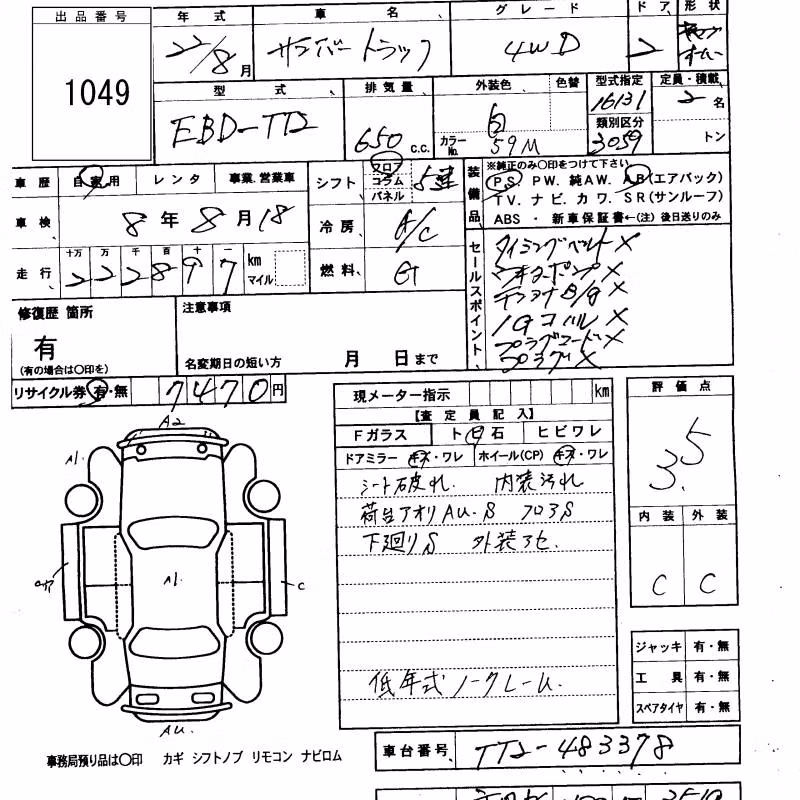 出品番号 年式 車名 グレード ドア 形状
1049
22/8月 サンバートラック 4WD 2
型式 排気量 外装色 色替 型式指定 定員・積載
EBD-TT2 650 c.c. 白 カラーNo. 59M 16131 2名
類別区分 3059 トン
車歴 自家用 レンタ 事業.営業車 シフト フロア コラム パネル 5速
装備品 ※純正のみ〇印をつけて下さい
P.S. PW. 純AW. AB(エアバック)
TV. ナビ. カワ. SR(サンルーフ)
ABS ・ 新車保証書←(注) 後日送りのみ
車検 8年8月18 冷房 A/C
走行 十万 万 千 百 十 一 222897 km マイル 燃料 G
セールスポイント タイミングベルト×
ウォーターポンプ×
テンショナB/G×
IGコイル×
プラグコード×
プラグ×
修復歴 箇所 注意事項
有
(有の場合は〇印を) 名変期日の短い方 月 日まで
リサイクル券 有・無 7470円
現メーター指示 km 評価点
【査定員記入】 3.5
Fガラス トビ石 ヒビワレ
ドアミラー キズ・ワレ ホイール(CP) キズ・ワレ
シート破れ 内装汚れ
荷台アオリAU.S フロアS 内装 外装
下廻りS 外装アセ. C C
A2
A1.
A1.
C
AU.
低年式ノークレーム.
ジャッキ 有・無
工具 有・無
スペアタイヤ 有・無
事務局預り品は〇印 カギ シフトノブ リモコン ナビロム
車台番号 TT2-483378